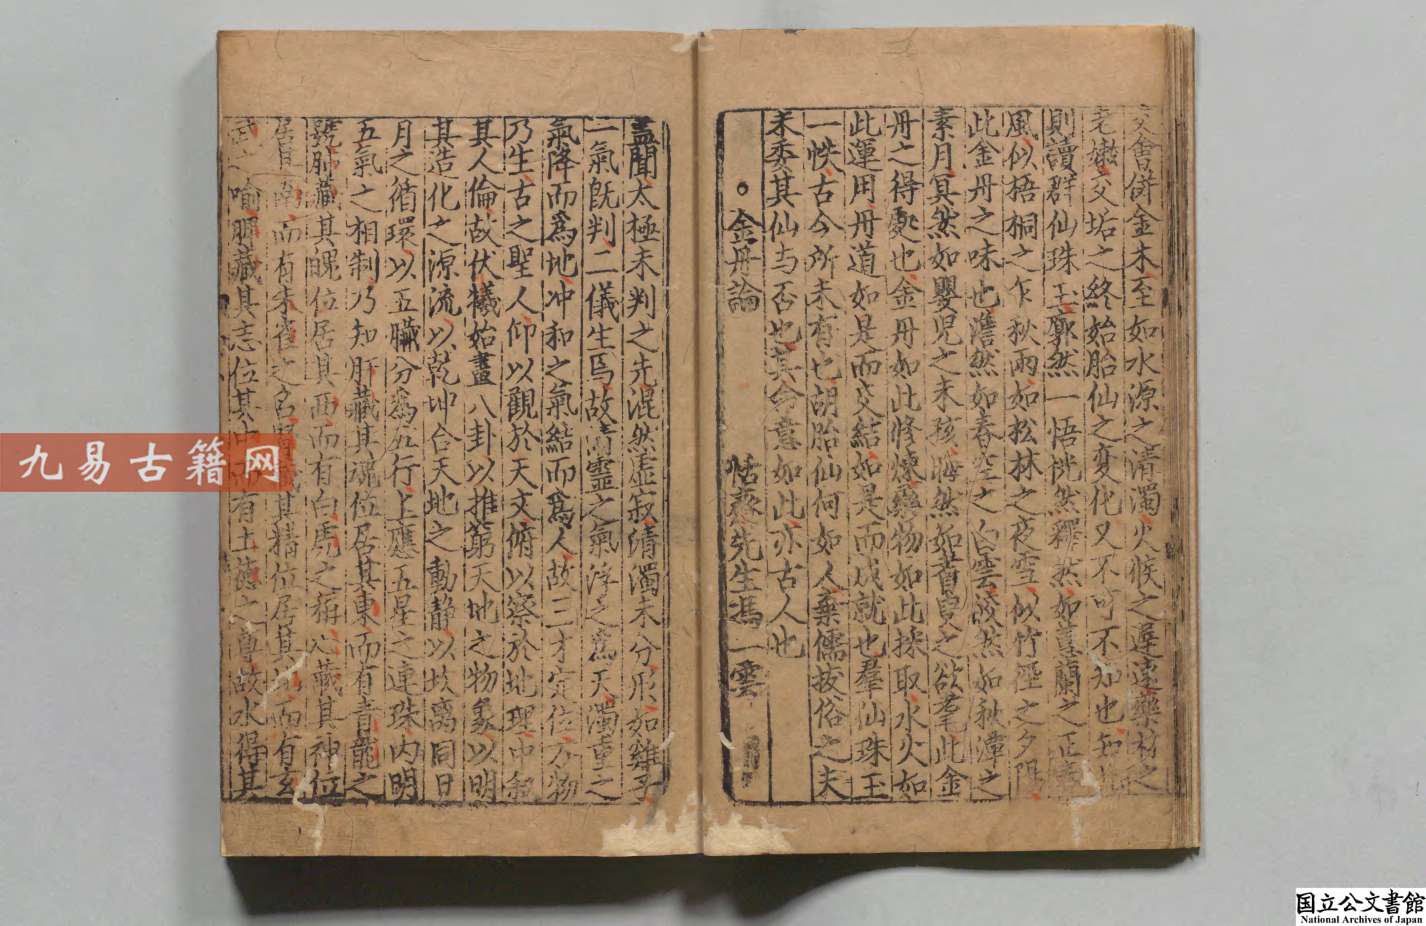 交會併金木至如水源之清濁火候之遲速藥材之
老嫩爻垢之終始胎仙之变化又不可不知也
則讀群仙珠玉廓然一悟恍然釋然如蕙蘭之正
風似梧桐之乍秋雨如松林之夜雪似竹徑之夕陽
此金丹之味也澹然如春空之白雲皎然如秋潭之
素月冥然如嬰兒之未孩晦然如耆叟之欲耄此金
丹之得処也金丹如此修煉藥物如此採取水火如
此運用丹道如是而交結如是而成就也羣仙珠玉
一帙古今所未有也胡胎仙何如人棄儒拔俗之夫
未委其仙与否也其命意如此亦古人也
。金丹論 恬養先生馮一雲
盖聞太極未判之先混然虛寂清濁未分形如雞子
二氣既判二儀生焉故清靈之氣浮之為天濁重之
氣降而爲地冲和之氣結而爲人故三才定位万物
乃生古之聖人仰以觀於天文俯以察於地理中叙
其人倫故伏犧始畫八卦以推窮天地之物象以明
其造化之源流以乾坤合天地之動静以坎离同日
月之循環以五臟分爲五行上應五星之連珠内明
五氣之相制乃知肝藏其魂位居其東而有青龍之
號肺藏其魄位居其西而有白虎之稱心藏其神位
居其南而有朱雀之名腎藏其精位居其北而有玄
武之喻脾藏其志位其中而有土德之尊故水得其
九易古籍网
国立公文書館
National Archives of Japan